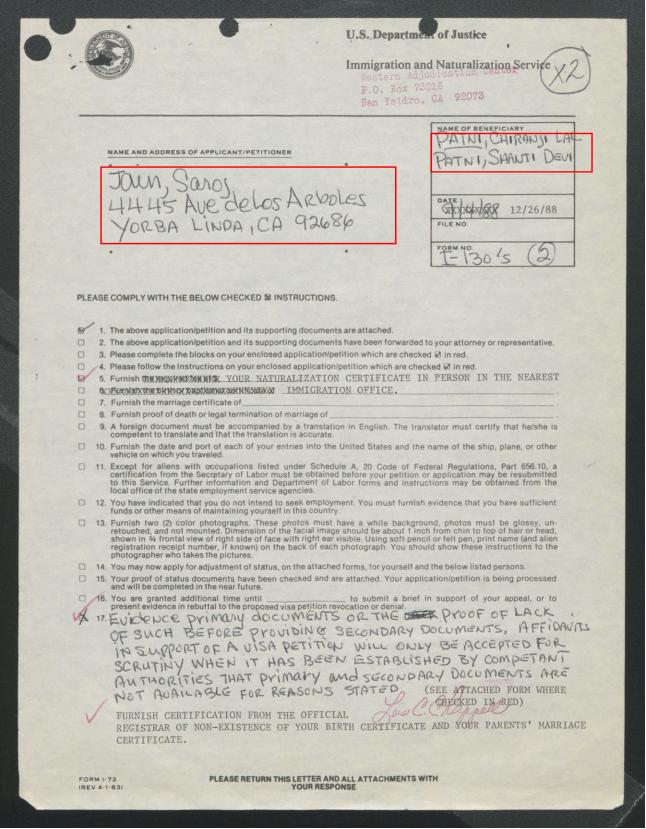 U.S. Department of Justice
Immigration and Naturalization Service
X2
Western Adjudication Center
P.O. Box 73016
San Ysidro, CA 92073
NAME OF BENEFICIARY
PATNI, CHIRANJI LAL
PATNI, SHANTI DEVI
NAME AND ADDRESS OF APPLICANT/PETITIONER
Jain, Saroj
4445 Ave de Los Arboles
YORBA LINDA, CA 92686
DATE
12/26/88
FILE NO.
FORM NO.
I-130's (2)
PLEASE COMPLY WITH THE BELOW CHECKED ☒ INSTRUCTIONS.
☒ 1. The above application/petition and its supporting documents are attached.
☐ 2. The above application/petition and its supporting documents have been forwarded to your attorney or representative.
☐ 3. Please complete the blocks on your enclosed application/petition which are checked ☑ in red.
☐ 4. Please follow the instructions on your enclosed application/petition which are checked ☑ in red.
☐ 5. Furnish YOUR NATURALIZATION CERTIFICATE IN PERSON IN THE NEAREST
☐ 6. IMMIGRATION OFFICE.
☐ 7. Furnish the marriage certificate of
☐ 8. Furnish proof of death or legal termination of marriage of
☐ 9. A foreign document must be accompanied by a translation in English. The translator must certify that he/she is
competent to translate and that the translation is accurate.
☐ 10. Furnish the date and port of each of your entries into the United States and the name of the ship, plane, or other
vehicle on which you traveled.
☐ 11. Except for aliens with occupations listed under Schedule A, 20 Code of Federal Regulations, Part 656.10, a
certification from the Secretary of Labor must be obtained before your petition or application may be resubmitted
to this Service. Further information and Department of Labor forms and instructions may be obtained from the
local office of the state employment service agencies.
☐ 12. You have indicated that you do not intend to seek employment. You must furnish evidence that you have sufficient
funds or other means of maintaining yourself in this country.
☐ 13. Furnish two (2) color photographs. These photos must have a white background, photos must be glossy, un-
retouched, and not mounted. Dimension of the facial image should be about 1 inch from chin to top of hair or head,
shown in ¾ frontal view of right side of face with right ear visible. Using soft pencil or felt pen, print name (and alien
registration receipt number, if known) on the back of each photograph. You should show these instructions to the
photographer who takes the pictures.
☐ 14. You may now apply for adjustment of status, on the attached forms, for yourself and the below listed persons.
☐ 15. Your proof of status documents have been checked and are attached. Your application/petition is being processed
and will be completed in the near future.
☐ 16. You are granted additional time until to submit a brief in support of your appeal, or to
present evidence in rebuttal to the proposed visa petition revocation or denial.
☒ 17. Evidence primary documents OR THE PROOF OF LACK
OF SUCH BEFORE PROVIDING SECONDARY DOCUMENTS, AFFIDAVITS
IN SUPPORT OF A VISA PETITION WILL ONLY BE ACCEPTED FOR
SCRUTINY WHEN IT HAS BEEN ESTABLISHED BY COMPETANT
AUTHORITIES THAT PRIMARY and SECONDARY DOCUMENTS ARE
NOT AVAILABLE FOR REASONS STATED (SEE ATTACHED FORM WHERE
CHECKED IN RED)
FURNISH CERTIFICATION FROM THE OFFICIAL
REGISTRAR OF NON-EXISTENCE OF YOUR BIRTH CERTIFICATE AND YOUR PARENTS' MARRIAGE
CERTIFICATE.
FORM I-72
(REV 4-1-83)
PLEASE RETURN THIS LETTER AND ALL ATTACHMENTS WITH
YOUR RESPONSE